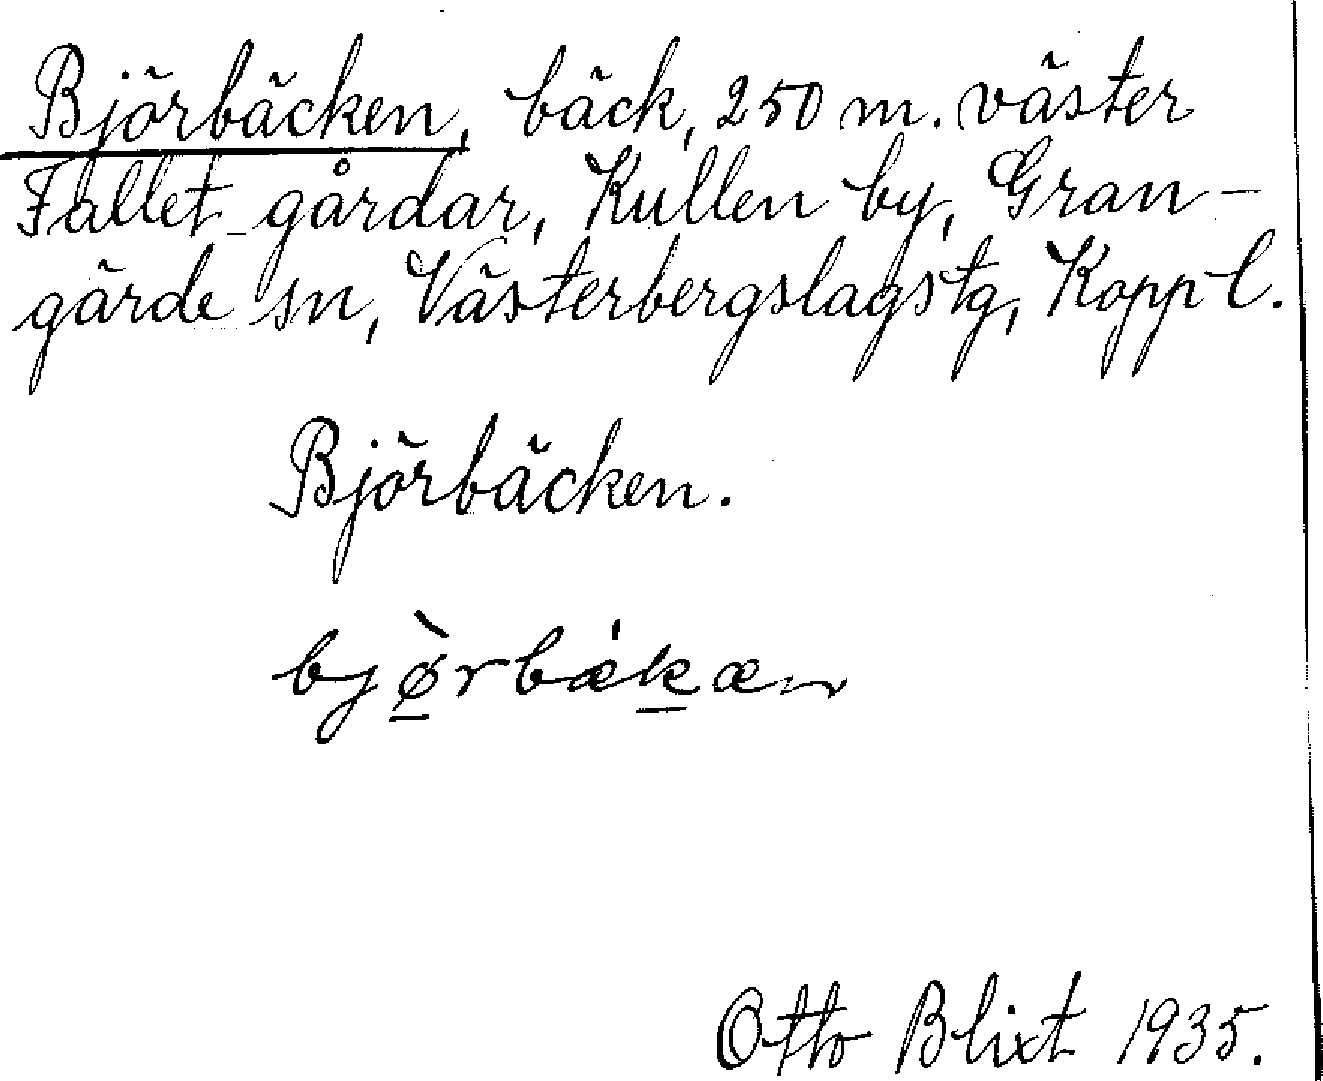 Björbäcken, bäck, 250 m. väster
Fallet gårdar, Kullen by, Gran-
gärde sn, Västerbergslagstg, Koppl.
Björbäcken.
bjø̀rbǽkæn
Otto Blixt 1935.